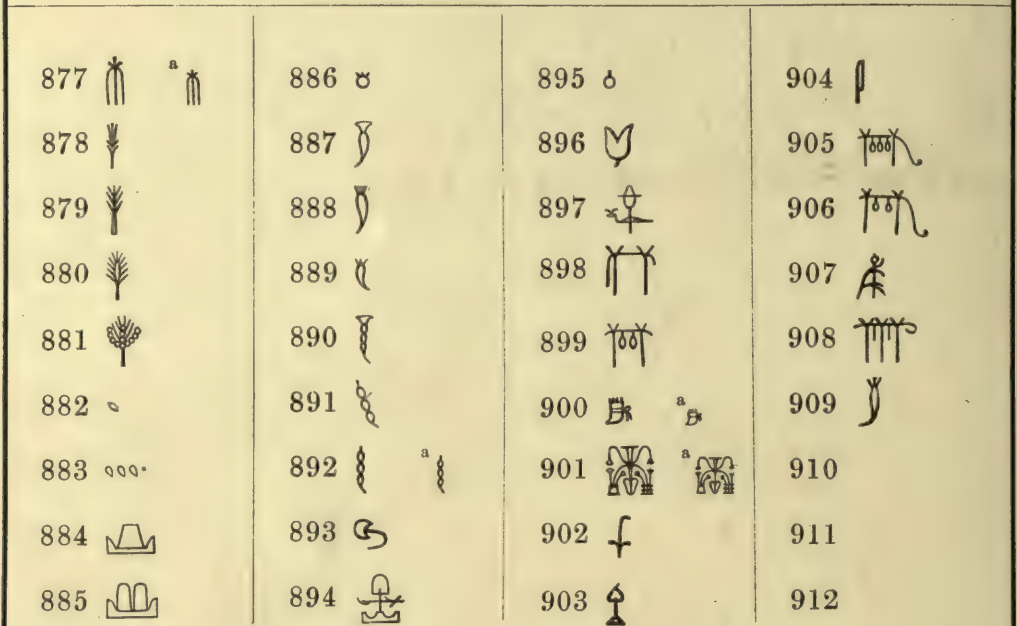 877 a
878
879
880
881
882
883
884
885
886
887
888
889
890
891
892 a
893
894
895
896
897
898
899
900 a
901 a
902
903
904
905
906
907
908
909
910
911
912